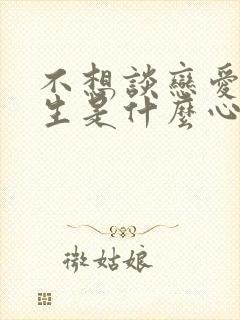 不想談戀愛
生是什麼心
微姑娘